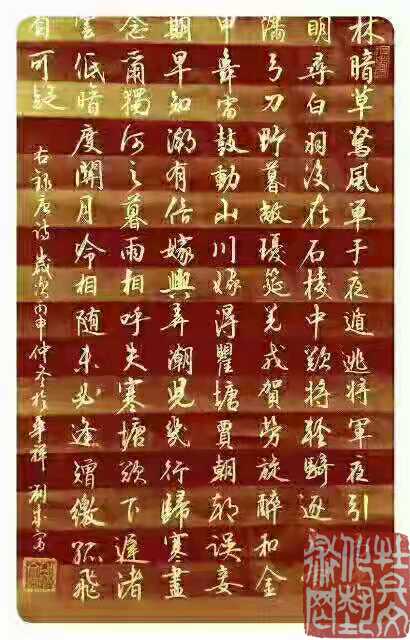 林暗草驚風單于夜遁逃將軍夜引
明尋白羽沒在石棱中欲將輕騎逐
滿弓刀野暮敞瓊筵羌戎賀勞旋醉和金
甲舞雷鼓動山川嫁得瞿塘賈朝朝誤妾
期早知潮有信嫁與弄潮兒幾行歸塞盡
念爾獨何之暮雨相呼失寒塘欲下遲渚
雲低暗度關月冷相隨未必逢矰繳孤飛
自可疑
右錄唐詩歲次丙申仲冬於華祥劉成